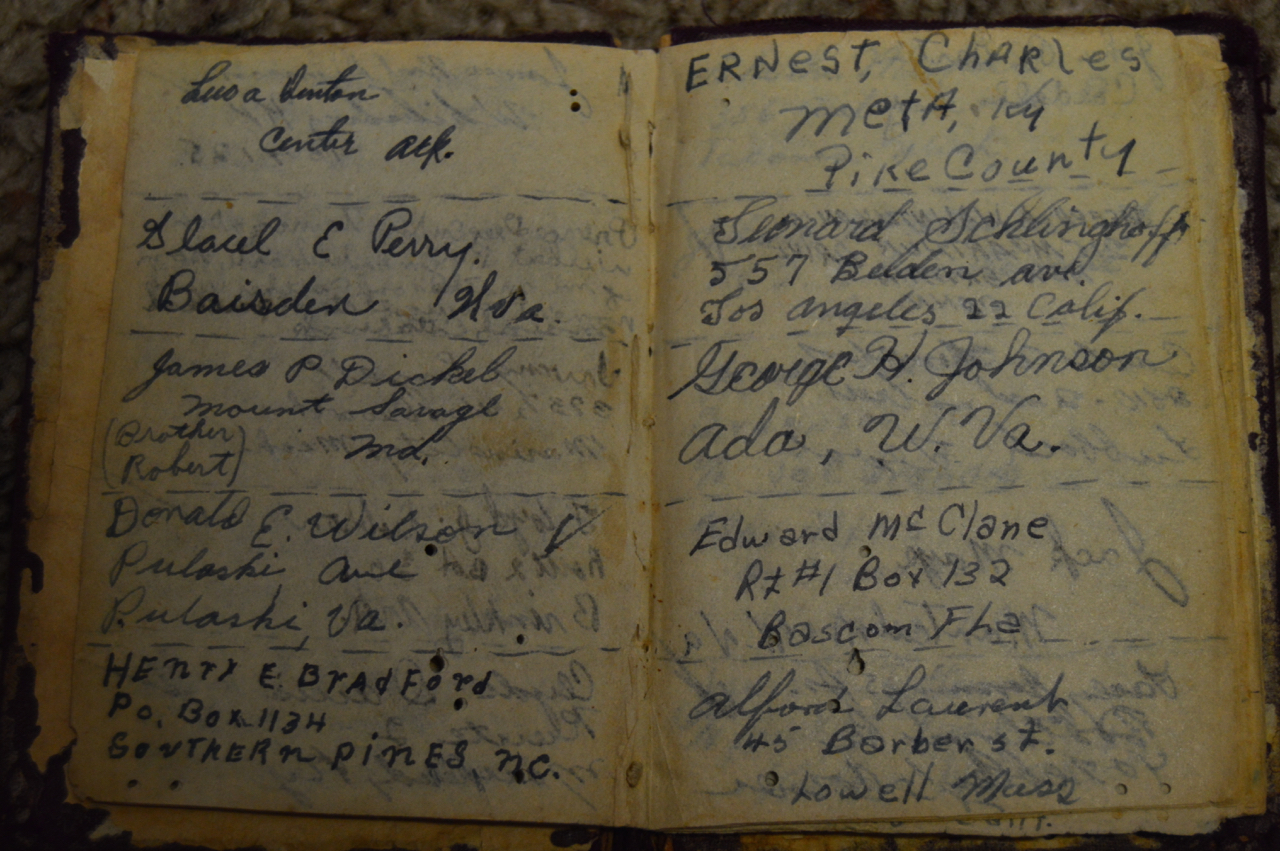 Center Ark.
E Perry.
Baisden W Va.
James P Dickel
Mount Savage
(Brother
Robert)
Md.
Donald E. Wilson
Pulaski Ave
Pulaski, Va.
HEnry E BrAdFord
Po. Box 1134
SOUTHERn PiNES, NC.
ERNEST, ChARles
MetA, Ky
Pike County
Leonard Schlinghoff
557 Belden ave.
Los Angeles 22 Calif.
George H. Johnson
Ada, W. Va.
Edward McClane
Rt #1 Box 132
Bascom Fla
Laurent
45 Barber st.
Lowell Mass